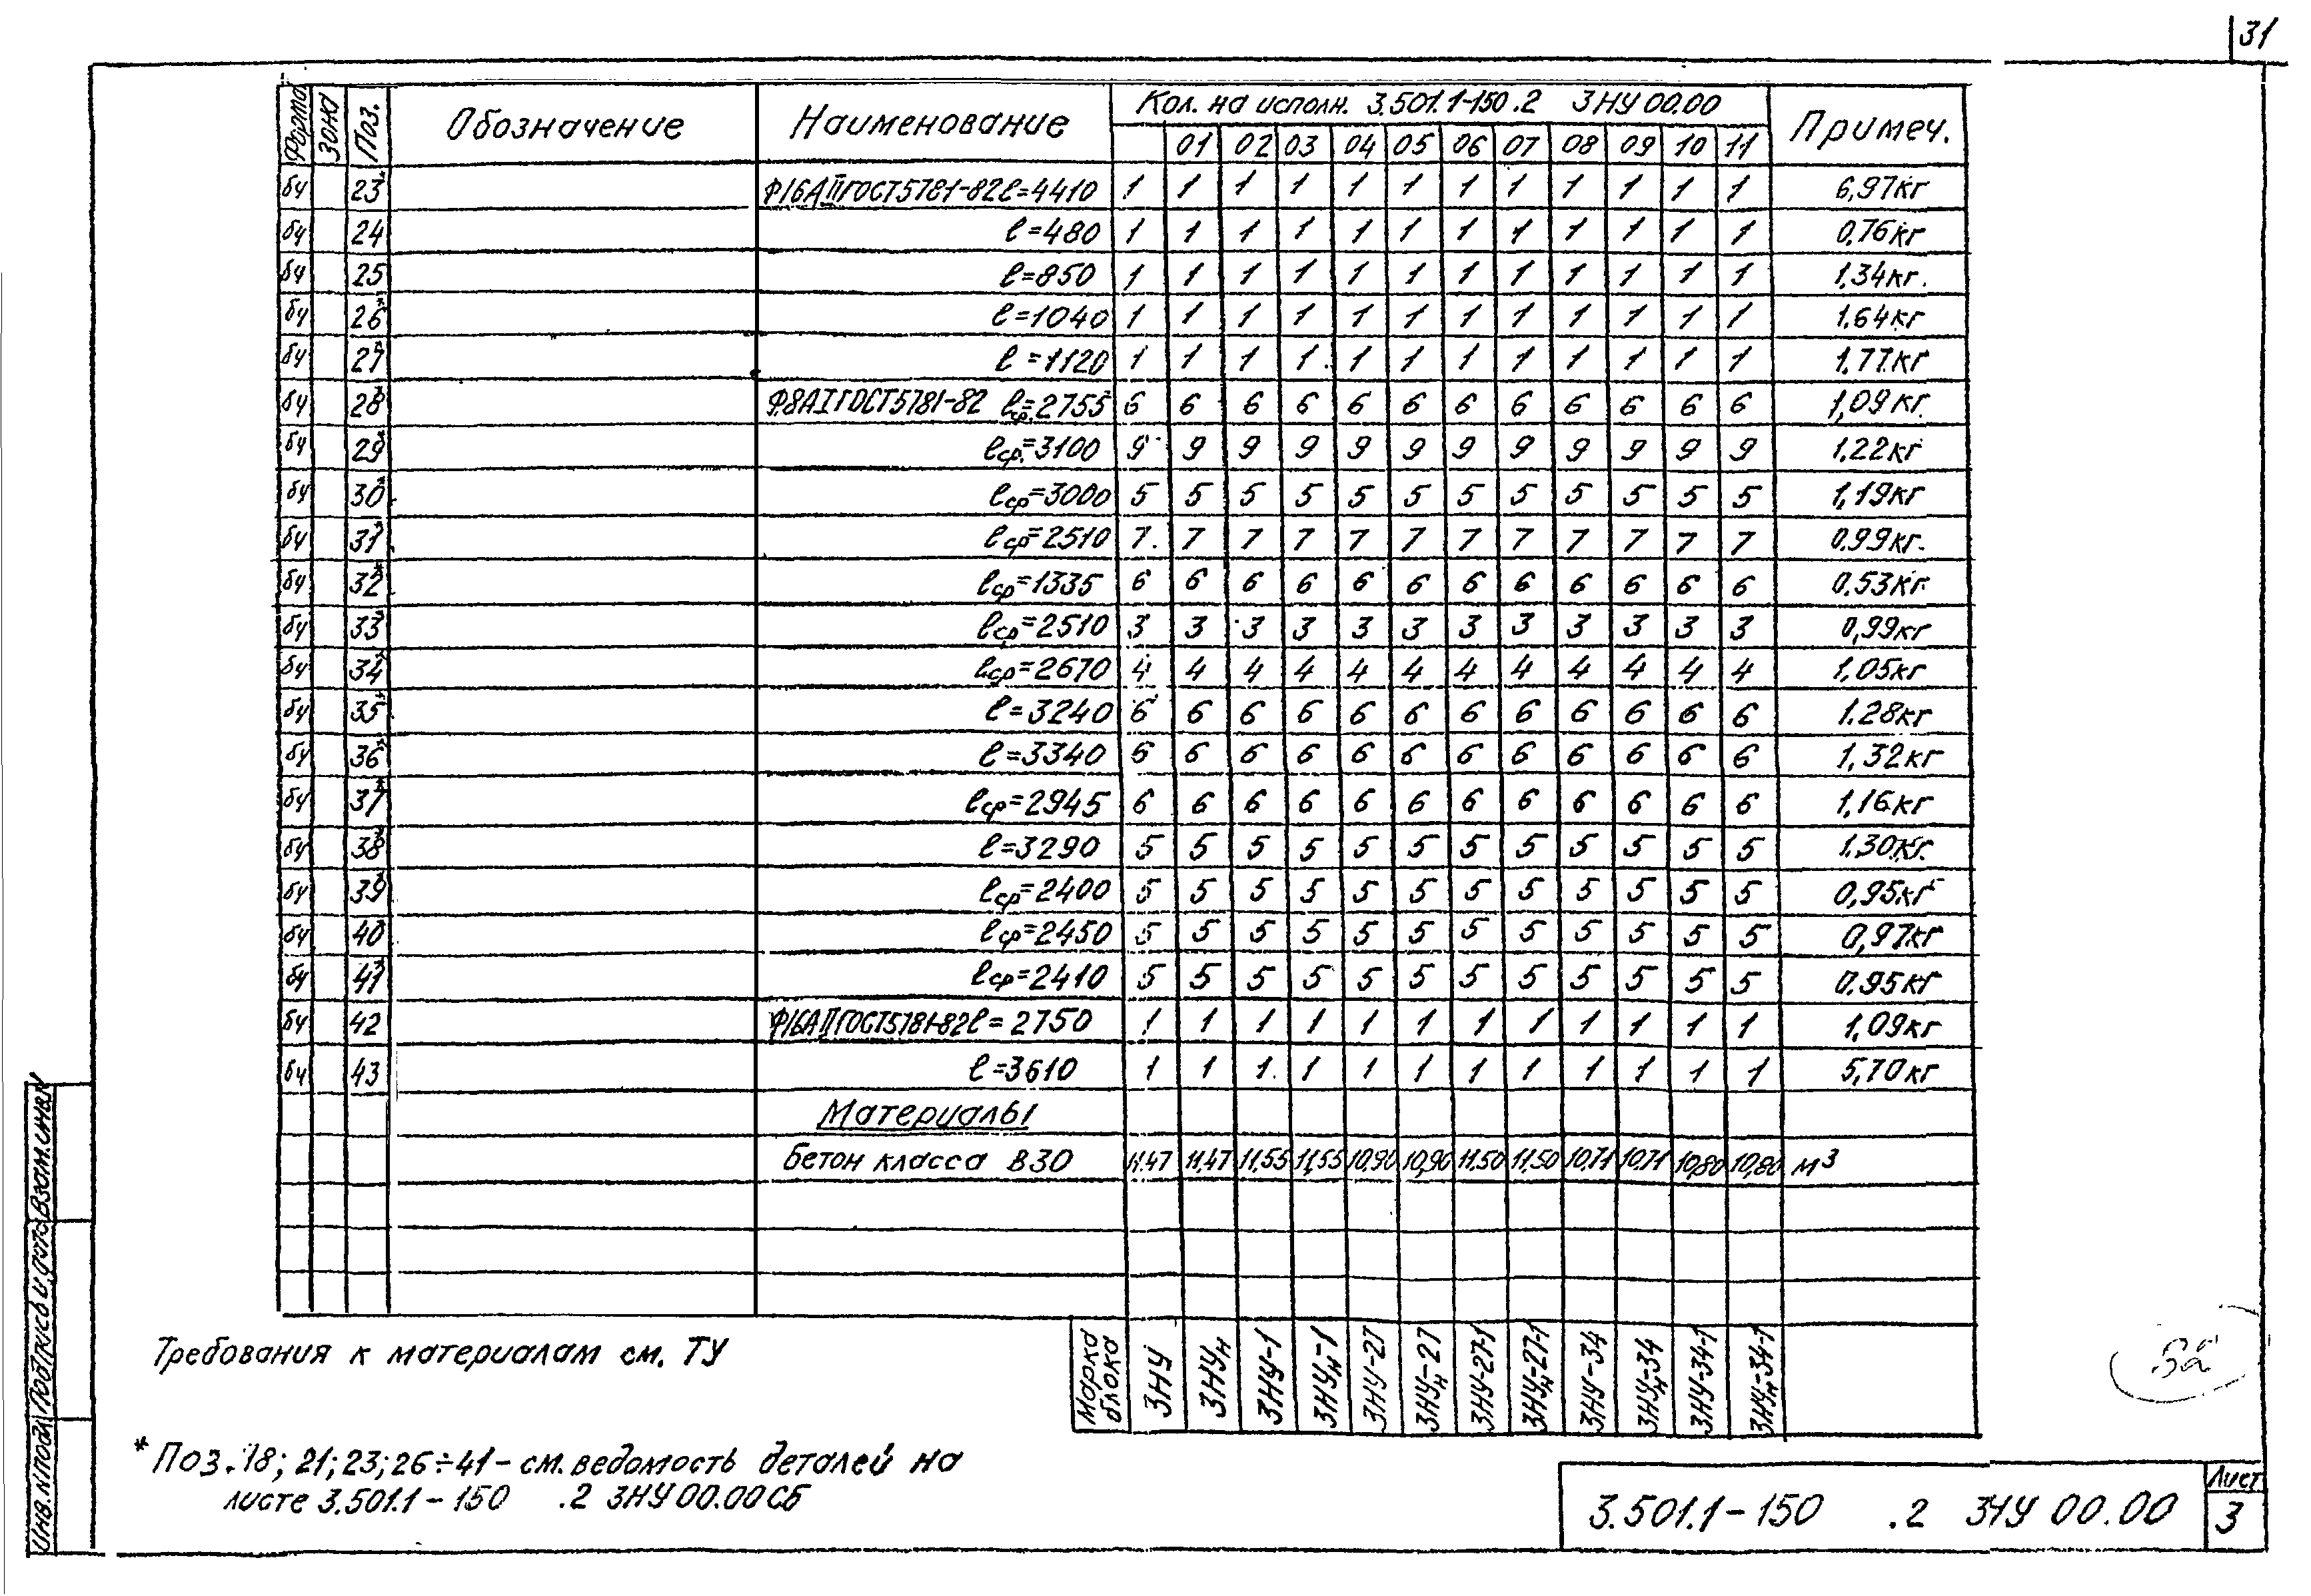 31
Формат Зона Поз. Обозначение Наименование Кол. на исполн. 3.501.1-150.2 3НУ 00.00 Примеч.
01 02 03 04 05 06 07 08 09 10 11
бч 23* Ф16АII ГОСТ 5781-82 ℓ=4410 1 1 1 1 1 1 1 1 1 1 1 1 6,97кг
бч 24 ℓ=480 1 1 1 1 1 1 1 1 1 1 1 1 0,76кг
бч 25 ℓ=850 1 1 1 1 1 1 1 1 1 1 1 1 1.34кг.
бч 26* ℓ=1040 1 1 1 1 1 1 1 1 1 1 1 1 1.64кг
бч 27* ℓ=1120 1 1 1 1 1 1 1 1 1 1 1 1 1,77кг
бч 28* Ф8АI ГОСТ 5781-82 ℓср.=2755 6 6 6 6 6 6 6 6 6 6 6 6 1,09кг.
бч 29* ℓср.=3100 9 9 9 9 9 9 9 9 9 9 9 9 1.22кг
бч 30* ℓср=3000 5 5 5 5 5 5 5 5 5 5 5 5 1,19кг
бч 31* ℓср=2510 7 7 7 7 7 7 7 7 7 7 7 7 0.99кг.
бч 32* ℓср=1335 6 6 6 6 6 6 6 6 6 6 6 6 0,53кг
бч 33* ℓср=2510 3 3 3 3 3 3 3 3 3 3 3 3 0,99кг
бч 34* ℓср=2670 4 4 4 4 4 4 4 4 4 4 4 4 1,05кг
бч 35* ℓ=3240 6 6 6 6 6 6 6 6 6 6 6 6 1.28кг
бч 36* ℓ=3340 6 6 6 6 6 6 6 6 6 6 6 6 1,32кг
бч 37* ℓср=2945 6 6 6 6 6 6 6 6 6 6 6 6 1,16кг
бч 38* ℓ=3290 5 5 5 5 5 5 5 5 5 5 5 5 1.30кг.
бч 39* ℓср=2400 5 5 5 5 5 5 5 5 5 5 5 5 0,95кг
бч 40* ℓср=2450 5 5 5 5 5 5 5 5 5 5 5 5 0,97кг
бч 41* ℓср=2410 5 5 5 5 5 5 5 5 5 5 5 5 0.95кг
бч 42 Ф16АII ГОСТ 5781-82 ℓ=2750 1 1 1 1 1 1 1 1 1 1 1 1 1,09кг
бч 43 ℓ=3610 1 1 1 1 1 1 1 1 1 1 1 1 5,70кг
Материалы
Бетон класса В30 11.47 11,47 11,55 11,55 10,90 10,90 11.50 11.50 10,71 10.71 10,80 10,80 м³
Марка блока 3НУ 3НУн 3НУ-1 3НУн-1 3НУ-27 3НУн-27 3НУ-27-1 3НУн-27-1 3НУ-34 3НУн-34 3НУ-34-1 3НУн-34-1
Требования к материалам см. ТУ
* Поз. 18; 21; 23; 26÷41 - см. ведомость деталей на
листе 3.501.1-150 .2 3НУ 00.00 СБ
3.501.1-150 .2 3НУ 00.00
Лист
3
Инв. № подл. Подпись и дата Взам. инв. №